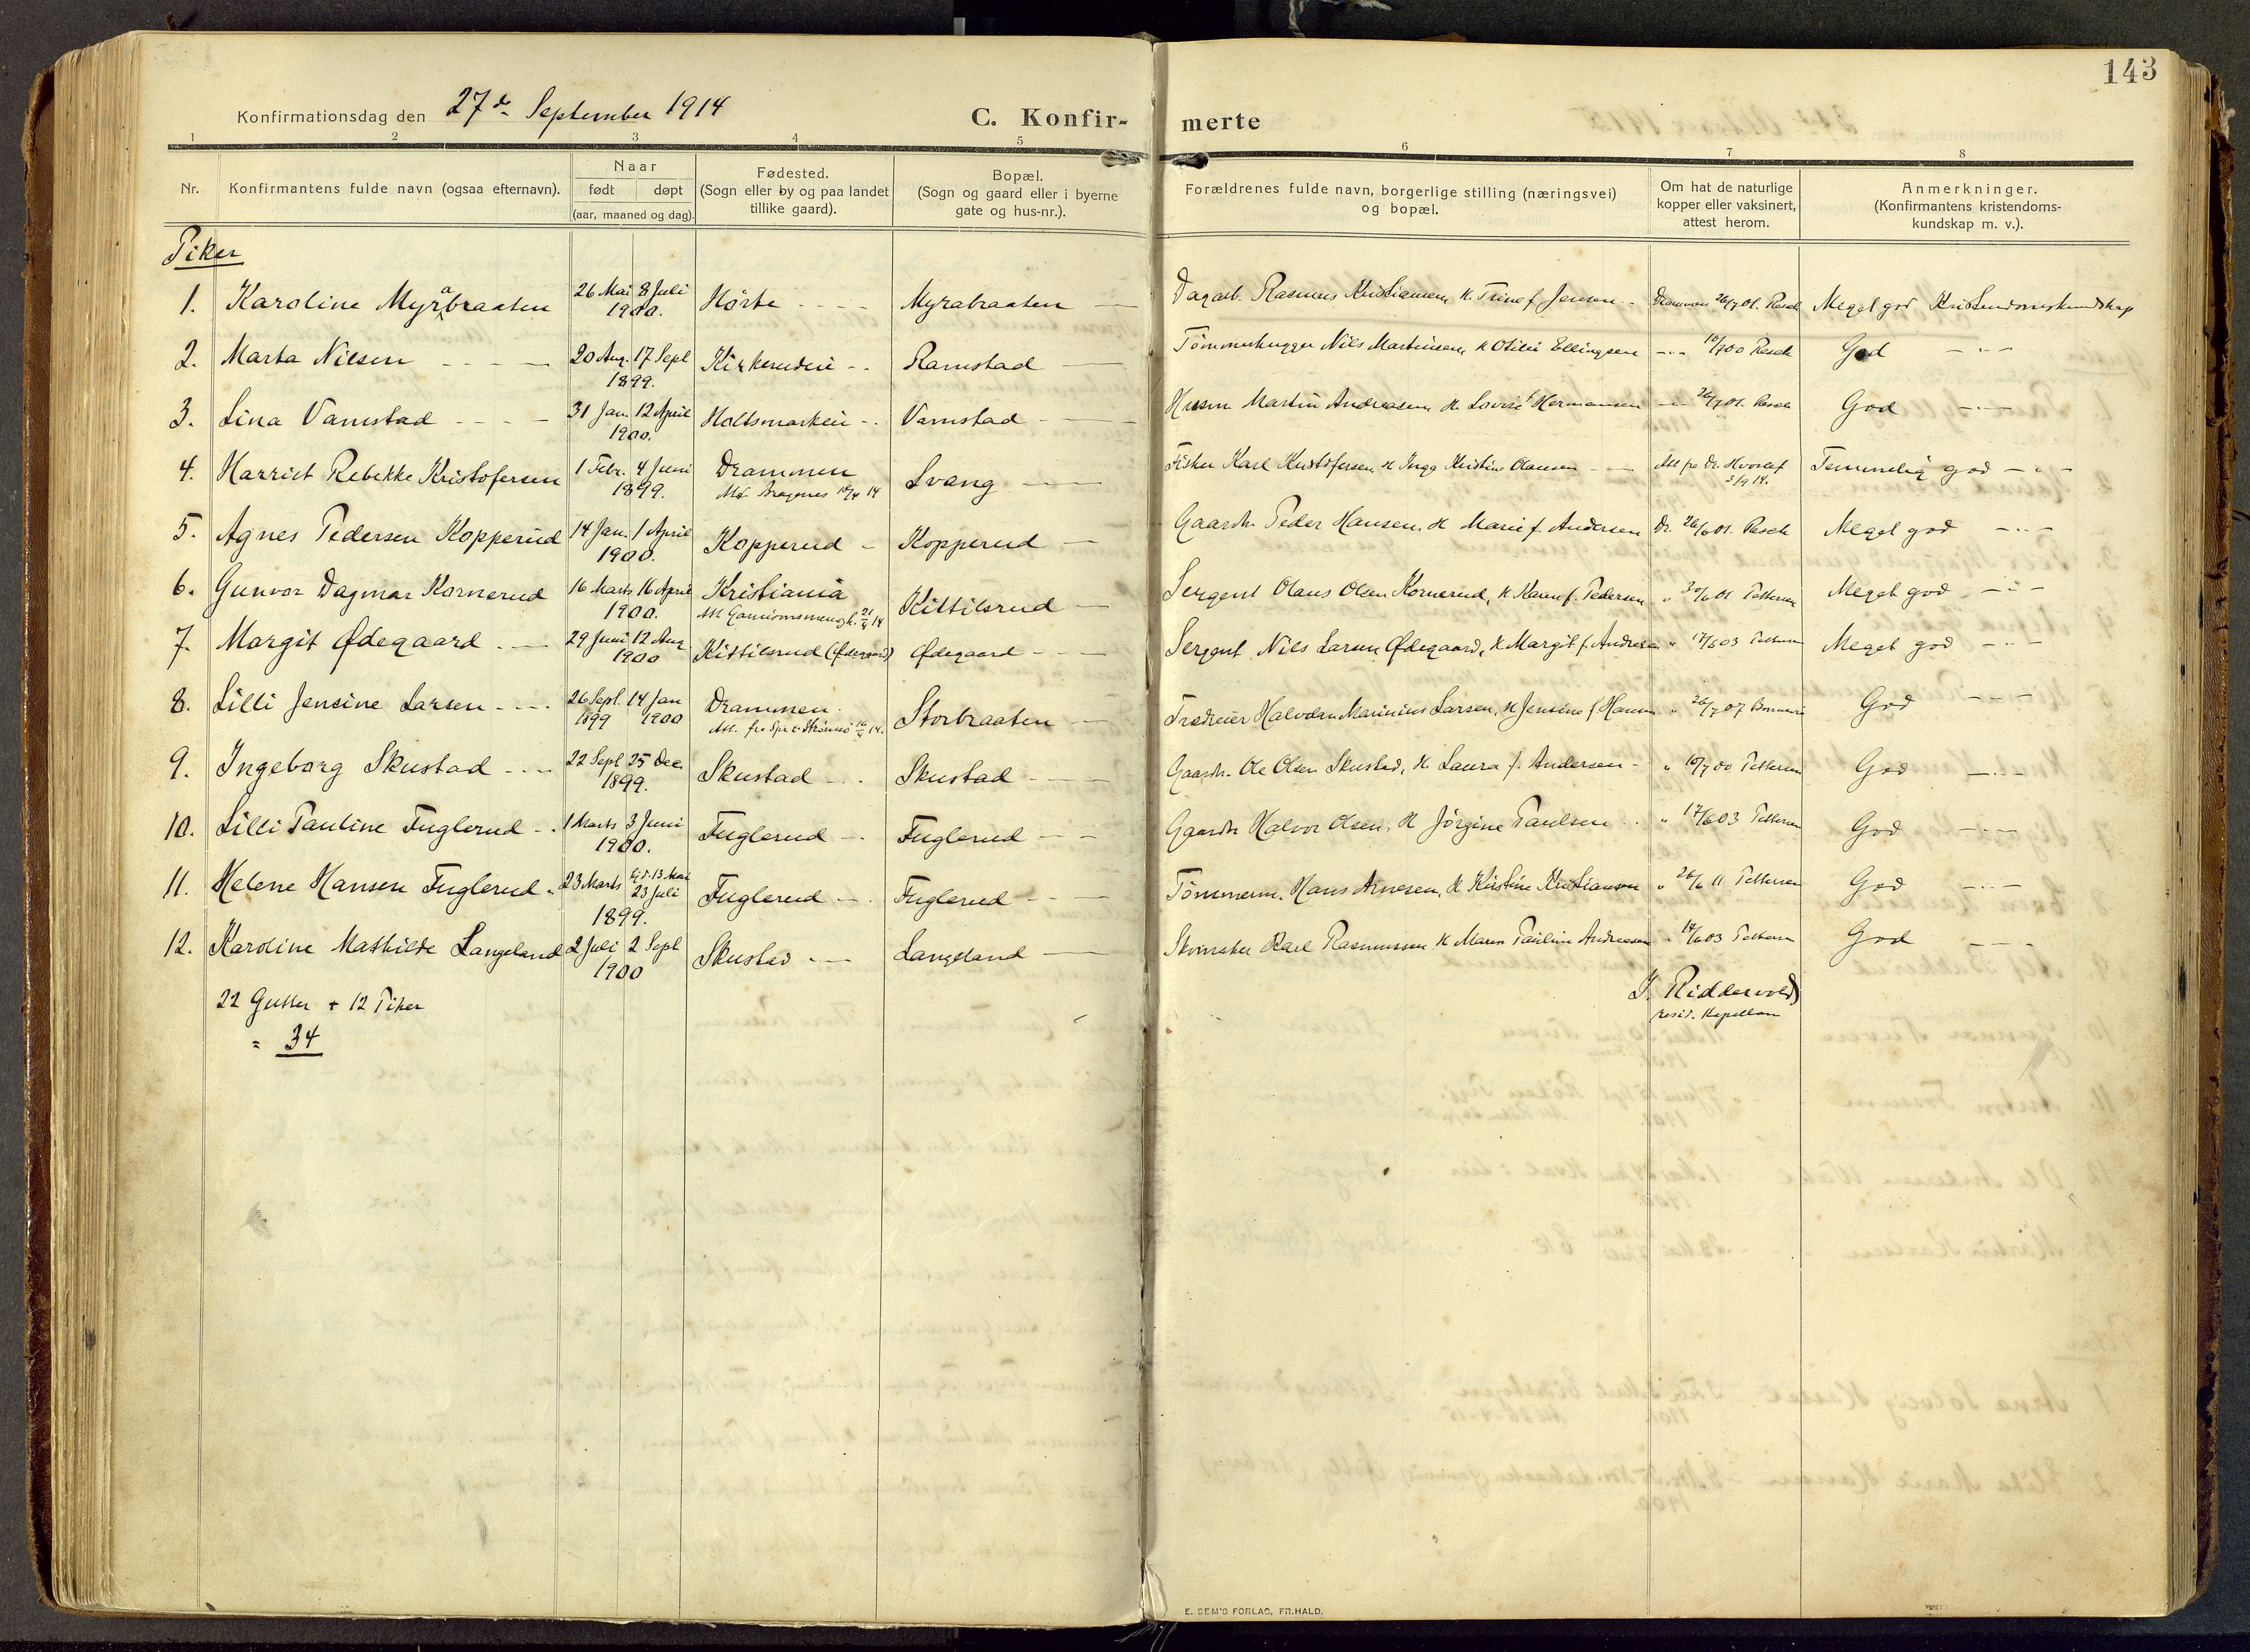 143
Konfirmationsdag den 27de September 1914 C. Konfir- merte
1 2 3 4 5 6 7 8
Nr. Konfirmantens fulde navn (ogsaa efternavn). Naar født døpt (aar, maaned og dag). Fødested. (Sogn eller by og paa landet tillike gaard). Bopæl. (Sogn og gaard eller i byerne gate og hus-nr.). Forældrenes fulde navn, borgerlige stilling (næringsvei) og bopæl. Om hat de naturlige kopper eller vaksinert, attest herom. Anmerkninger. (Konfirmantens kristendoms- kundskap m. v.).
Piker
1. Karoline Myrabraaten 26 Mai 8 Juli 1900. Hörte Myrabraaten Dagarb. Rasmus Kristiansen, K. Trine f. Jensen Drammen 26/7 01. Resch Meget god Kristendomskundskap
2. Marta Nilsen 20 Aug. 17 Sept 1899. Kirkerudeie Ramstad Tömmerhugger Nils Martinsen, K Otilie Ellingsen 10/7 00 Resch God
3. Lina Vamstad 31 Jan. 12 April 1900. Holtsmarkeie Vamstad Husm Martin Andreasen, K. Lovise f Hermansen 26/7 01. Resch God
4. Harriet Rebekke Kristofersen 1 Febr. 4 Juni 1899. Drammen Att. Bragenes 18/4 14 Svang Fisker Karl Kristofersen K Inga Kristine Olausen Att fra Dr. Hvoslef 3/9 14. Temmelig god
5. Agnes Pedersen Kopperud 14 Jan. 1 April 1900. Kopperud Kopperud Gaardbr. Peder Hansen, K Marie f. Andersen Dr. 26/6 01. Resch Meget god
6. Gunvor Dagmar Kornerud 16 Marts 16 April 1900. Kristiania Att Garnisonsmengh. 21/4 14 Kittilsrud Sergent Olaus Olsen Kornerud, K Karen f. Pedersen " 30/6 01 Pettersen Meget god
7. Margit Ødegaard 29 Juni 12 Aug 1900 Kittilsrud (Ødegaard) Ødegaard Sergent Nils Larsen Ødegaard, K Margit f. Andresen " 17/6 03 Pettersen Meget god
8. Lilli Jensine Larsen 26 Sept. 14 Jan 1899 1900 Drammen. Att. fra Spr. t. Strömsö 16/4 14. Storbraaten Trædreier Halvdan Marinius Larsen, K Jensine f Hansen " 26/7 07 God
9. Ingeborg Skustad 22 Sept 25 Dec. 1899. Skustad Skustad Gaardbr. Ole Olsen Skustad, K. Laura f. Andersen " 10/7 00 Pettersen God
10. Lilli Pauline Fuglerud 1 Marts 3 Juni 1900. Fuglerud Fuglerud Gaardbr Halvor Olsen, K Jörgine Paulsen " 17/6 03 Pettersen God
11. Helene Hansen Fuglerud 23 Marts Hj.d. 13 Mai 23 Juli 1899. Fuglerud Fuglerud Tömmerm. Hans Arnesen, K Kristine Kristiansen " 26/6 11 Pettersen God
12. Karoline Mathilde Langeland 2 Juli 2 Sept 1900 Skustad Langeland Skomaker Karl Rasmussen K Maren Pauline Andreasen " 17/6 03 Pettersen God
22 Gutter + 12 Piker
= 34
J. Riddervold
resid. Kapellan
E. SEM'S FORLAG, FR.HALD.